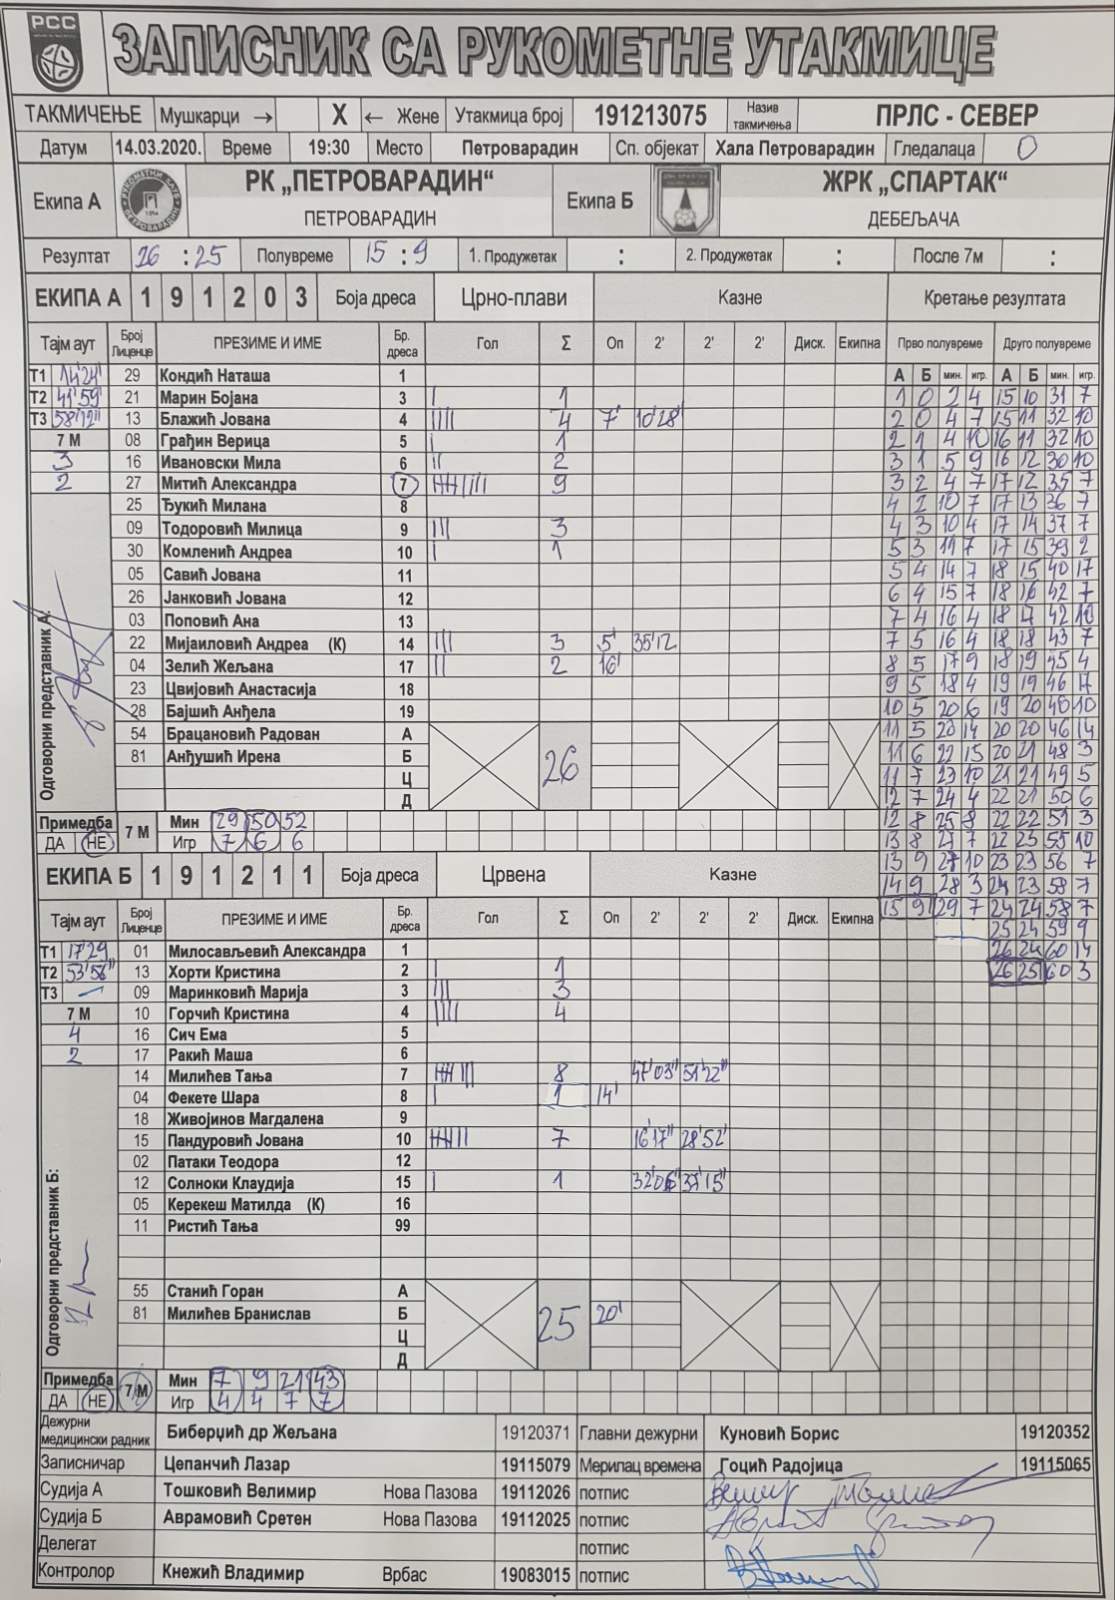 РСС
ЗАПИСНИК СА РУКОМЕТНЕ УТАКМИЦЕ
ТАКМИЧЕЊЕ Мушкарци → X ← Жене Утакмица број 191213075 Назив такмичења ПРЛС - СЕВЕР
Датум 14.03.2020. Време 19:30 Место Петроварадин Сп. објекат Хала Петроварадин Гледалаца 0
Екипа А РК „ПЕТРОВАРАДИН“ Екипа Б ЖРК „СПАРТАК“
ПЕТРОВАРАДИН ДЕБЕЉАЧА
Резултат 26 : 25 Полувреме 15 : 9 1. Продужетак : 2. Продужетак : После 7м :
ЕКИПА А 1 9 1 2 0 3 Боја дреса Црно-плави Казне Кретање резултата
Тајм аут Број Лиценце ПРЕЗИМЕ И ИМЕ Бр. дреса Гол Σ Оп 2' 2' 2' Диск. Екипна Прво полувреме Друго полувреме
А Б мин. игр. А Б мин. игр.
Т1 14'24" 29 Кондић Наташа 1
Т2 41'59" 21 Марин Бојана 3 | 1
Т3 58'12" 13 Блажић Јована 4 |||| 4 7' 10'28"
7 М 08 Грађин Верица 5 | 1
3 16 Ивановски Мила 6 || 2
2 27 Митић Александра 7 9
25 Ђукић Милана 8
09 Тодоровић Милица 9 ||| 3
30 Комленић Андреа 10 | 1
05 Савић Јована 11
26 Јанковић Јована 12
03 Поповић Ана 13
22 Мијаиловић Андреа (К) 14 ||| 3 5' 35'12
04 Зелић Жељана 17 || 2 16'
23 Цвијовић Анастасија 18
28 Бајшић Анђела 19
54 Брацановић Радован А
81 Анђушић Ирена Б
Ц
Д
26
Одговорни представник А:
1 0 2 4 15 10 31 7
2 0 4 7 15 11 32 10
2 1 4 10 16 11 32 10
3 1 5 9 16 12 30 10
3 2 4 7 17 12 35 7
4 2 10 7 17 13 36 7
4 3 10 4 17 14 37 7
5 3 11 7 17 15 39 2
5 4 14 7 18 15 40 17
6 4 15 7 18 16 42 7
7 4 16 4 18 17 42 10
7 5 16 4 18 18 43 7
8 5 17 9 18 19 45 4
9 5 18 4 19 19 46 17
10 5 20 6 19 20 46 10
11 5 20 14 20 20 46 14
11 6 22 15 20 21 48 3
11 7 23 10 21 21 49 5
12 7 24 4 22 21 50 6
12 8 25 8 22 22 51 3
13 8 27 7 22 23 55 10
13 9 27 10 23 23 56 7
14 9 28 3 24 23 58 7
15 9 29 7 24 24 58 7
25 24 59 9
26 24 60 14
26 25 60 3
Примедба ДА НЕ 7 М Мин 29 50 52
Игр 7 6 6
ЕКИПА Б 1 9 1 2 1 1 Боја дреса Црвена Казне
Тајм аут Број Лиценце ПРЕЗИМЕ И ИМЕ Бр. дреса Гол Σ Оп 2' 2' 2' Диск. Екипна
Т1 17'29 01 Милосављевић Александра 1
Т2 53'56" 13 Хорти Кристина 2 | 1
Т3 – 09 Маринковић Марија 3 ||| 3
7 М 10 Горчић Кристина 4 |||| 4
4 16 Сич Ема 5
2 17 Ракић Маша 6
14 Милићев Тања 7 8 47'03" 51'22"
04 Фекете Шара 8 | 1 14'
18 Живојинов Магдалена 9
15 Пандуровић Јована 10 7 16'17" 28'52'
02 Патаки Теодора 12
12 Солноки Клаудија 15 | 1 32'06" 37'15"
05 Керекеш Матилда (К) 16
11 Ристић Тања 99
55 Станић Горан А
81 Милићев Бранислав Б 20'
Ц
Д
25
Одговорни представник Б:
Примедба ДА НЕ 7 М Мин 7 9 21 43
Игр 4 4 7 7
Дежурни медицински радник Биберџић др Жељана 19120371 Главни дежурни Куновић Борис 19120352
Записничар Цепанчић Лазар 19115079 Мерилац времена Гоцић Радојица 19115065
Судија А Тошковић Велимир Нова Пазова 19112026 потпис
Судија Б Аврамовић Сретен Нова Пазова 19112025 потпис
Делегат потпис
Контролор Кнежић Владимир Врбас 19083015 потпис